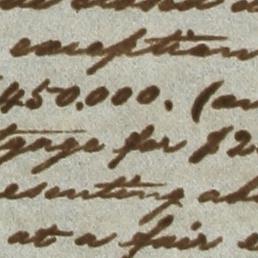 exception
450.000. (an
gage for $2
esenting
at a fair